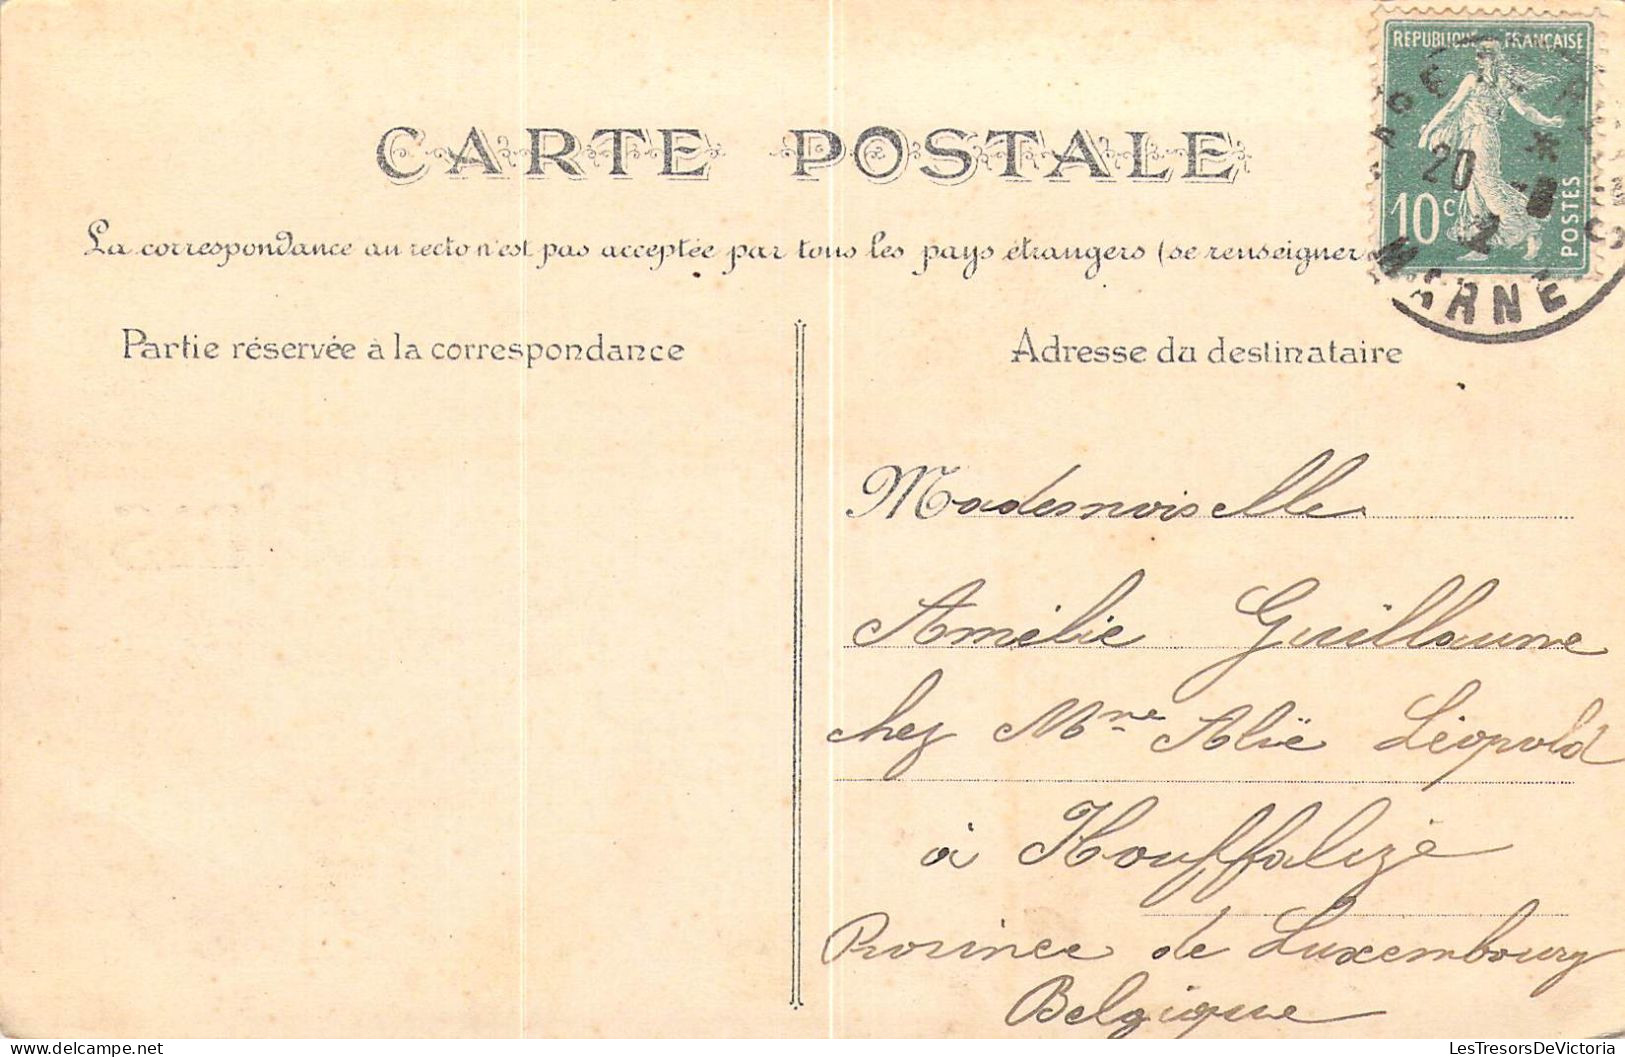 REPUBLIQUE FRANÇAISE
10c POSTES
20
MARNE
CARTE POSTALE
La correspondance au recto n'est pas acceptée par tous les pays étrangers (se renseigner
Partie réservée à la correspondance
Adresse du destinataire
Mademoiselle
Amélie Guillaume
chez Mme Alië Léopold
à Houffalize
Province de Luxembourg
Belgique
LesTresorsDeVictoria